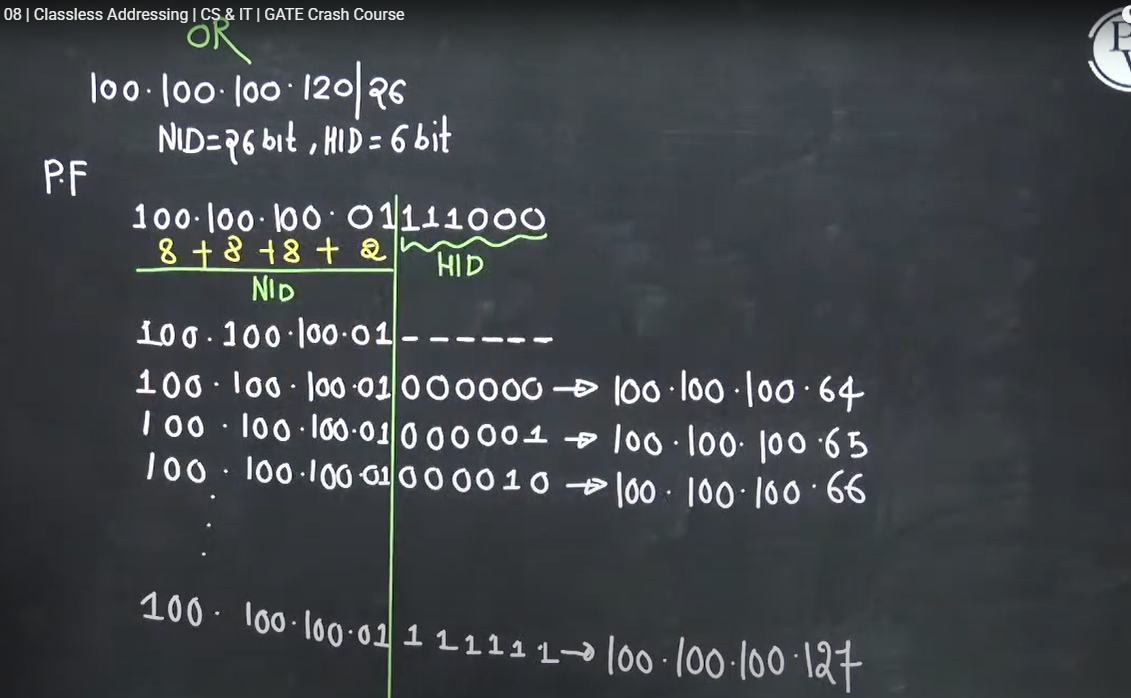 08 | Classless Addressing | CS & IT | GATE Crash Course
OR
100.100.100.120/26
NID=26 bit, HID = 6 bit
P.F
100.100.100.01|111000
8 + 8 + 8 + 2
HID
NID
100.100.100.01|------
100.100.100.01|000000 → 100.100.100.64
100.100.100.01|000001 → 100.100.100.65
100.100.100.01|000010 → 100.100.100.66
.
.
.
100.100.100.01|111111 → 100.100.100.127